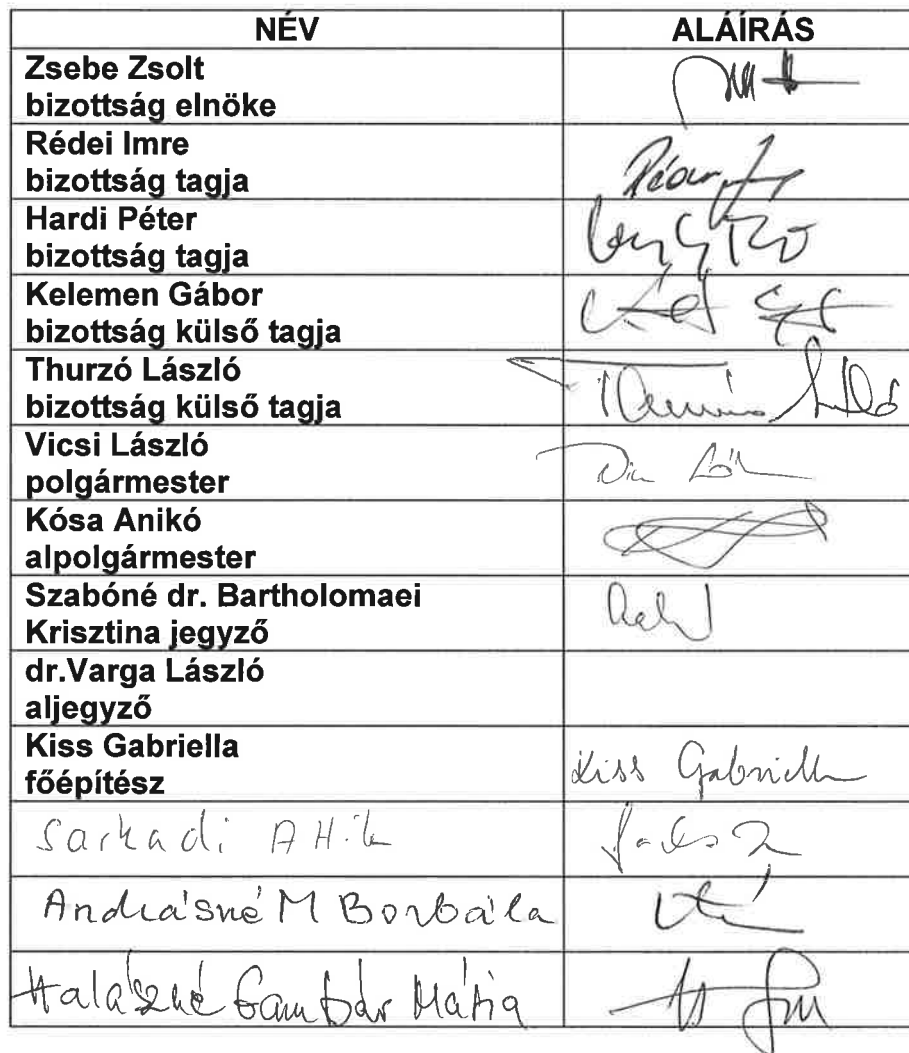 NÉV ALÁÍRÁS
Zsebe Zsolt
bizottság elnöke
Rédei Imre
bizottság tagja
Hardi Péter
bizottság tagja
Kelemen Gábor
bizottság külső tagja
Thurzó László
bizottság külső tagja
Vicsi László
polgármester
Kósa Anikó
alpolgármester
Szabóné dr. Bartholomaei
Krisztina jegyző
dr.Varga László
aljegyző
Kiss Gabriella
főépítész Kiss Gabriella
Sarkadi Attila
Andrásné M Borbála
Halászné Gambár Mária